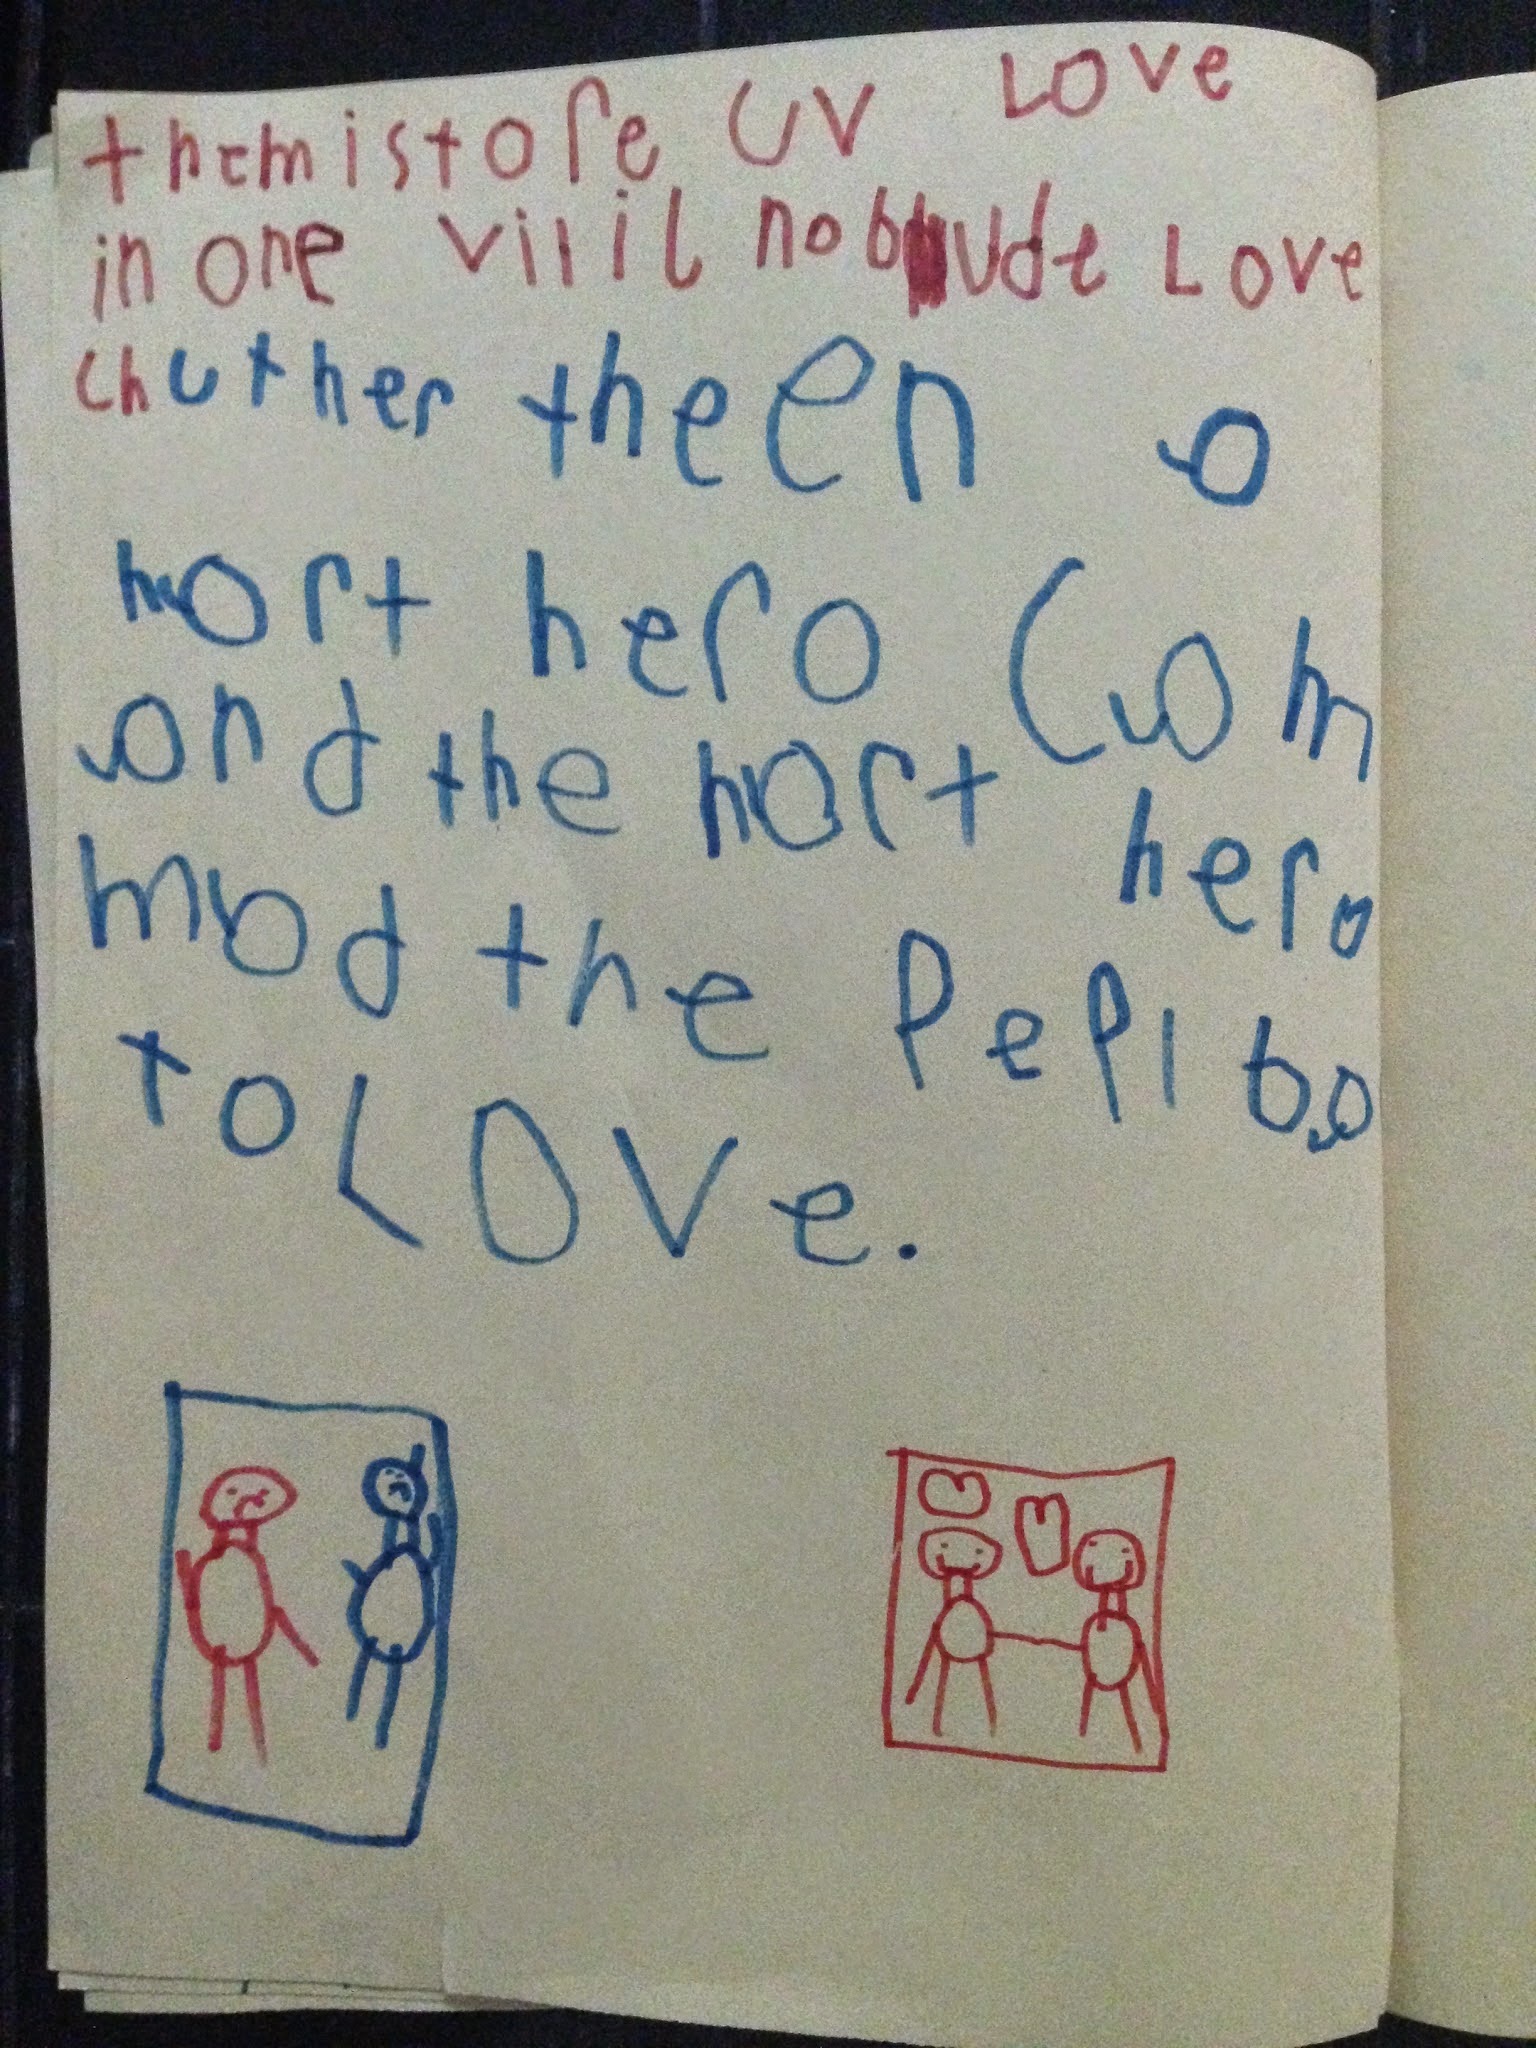 themistore uv Love
in one vilil nobude Love
chuther theen a
hart hero Cam
and the hart hero
mad the PePl ba
to Love.